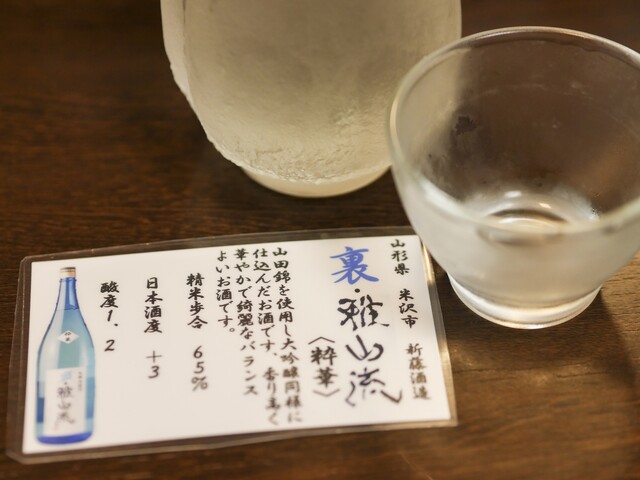 山形県 米沢市 新藤酒造
裏・雅山流
〈粋華〉
山田錦を使用し大吟醸同様に
仕込んだお酒です、香り高く
華やかで綺麗なバランス
よいお酒です。
精米歩合 65%
日本酒度 +3
酸度1.2
裏・雅山流